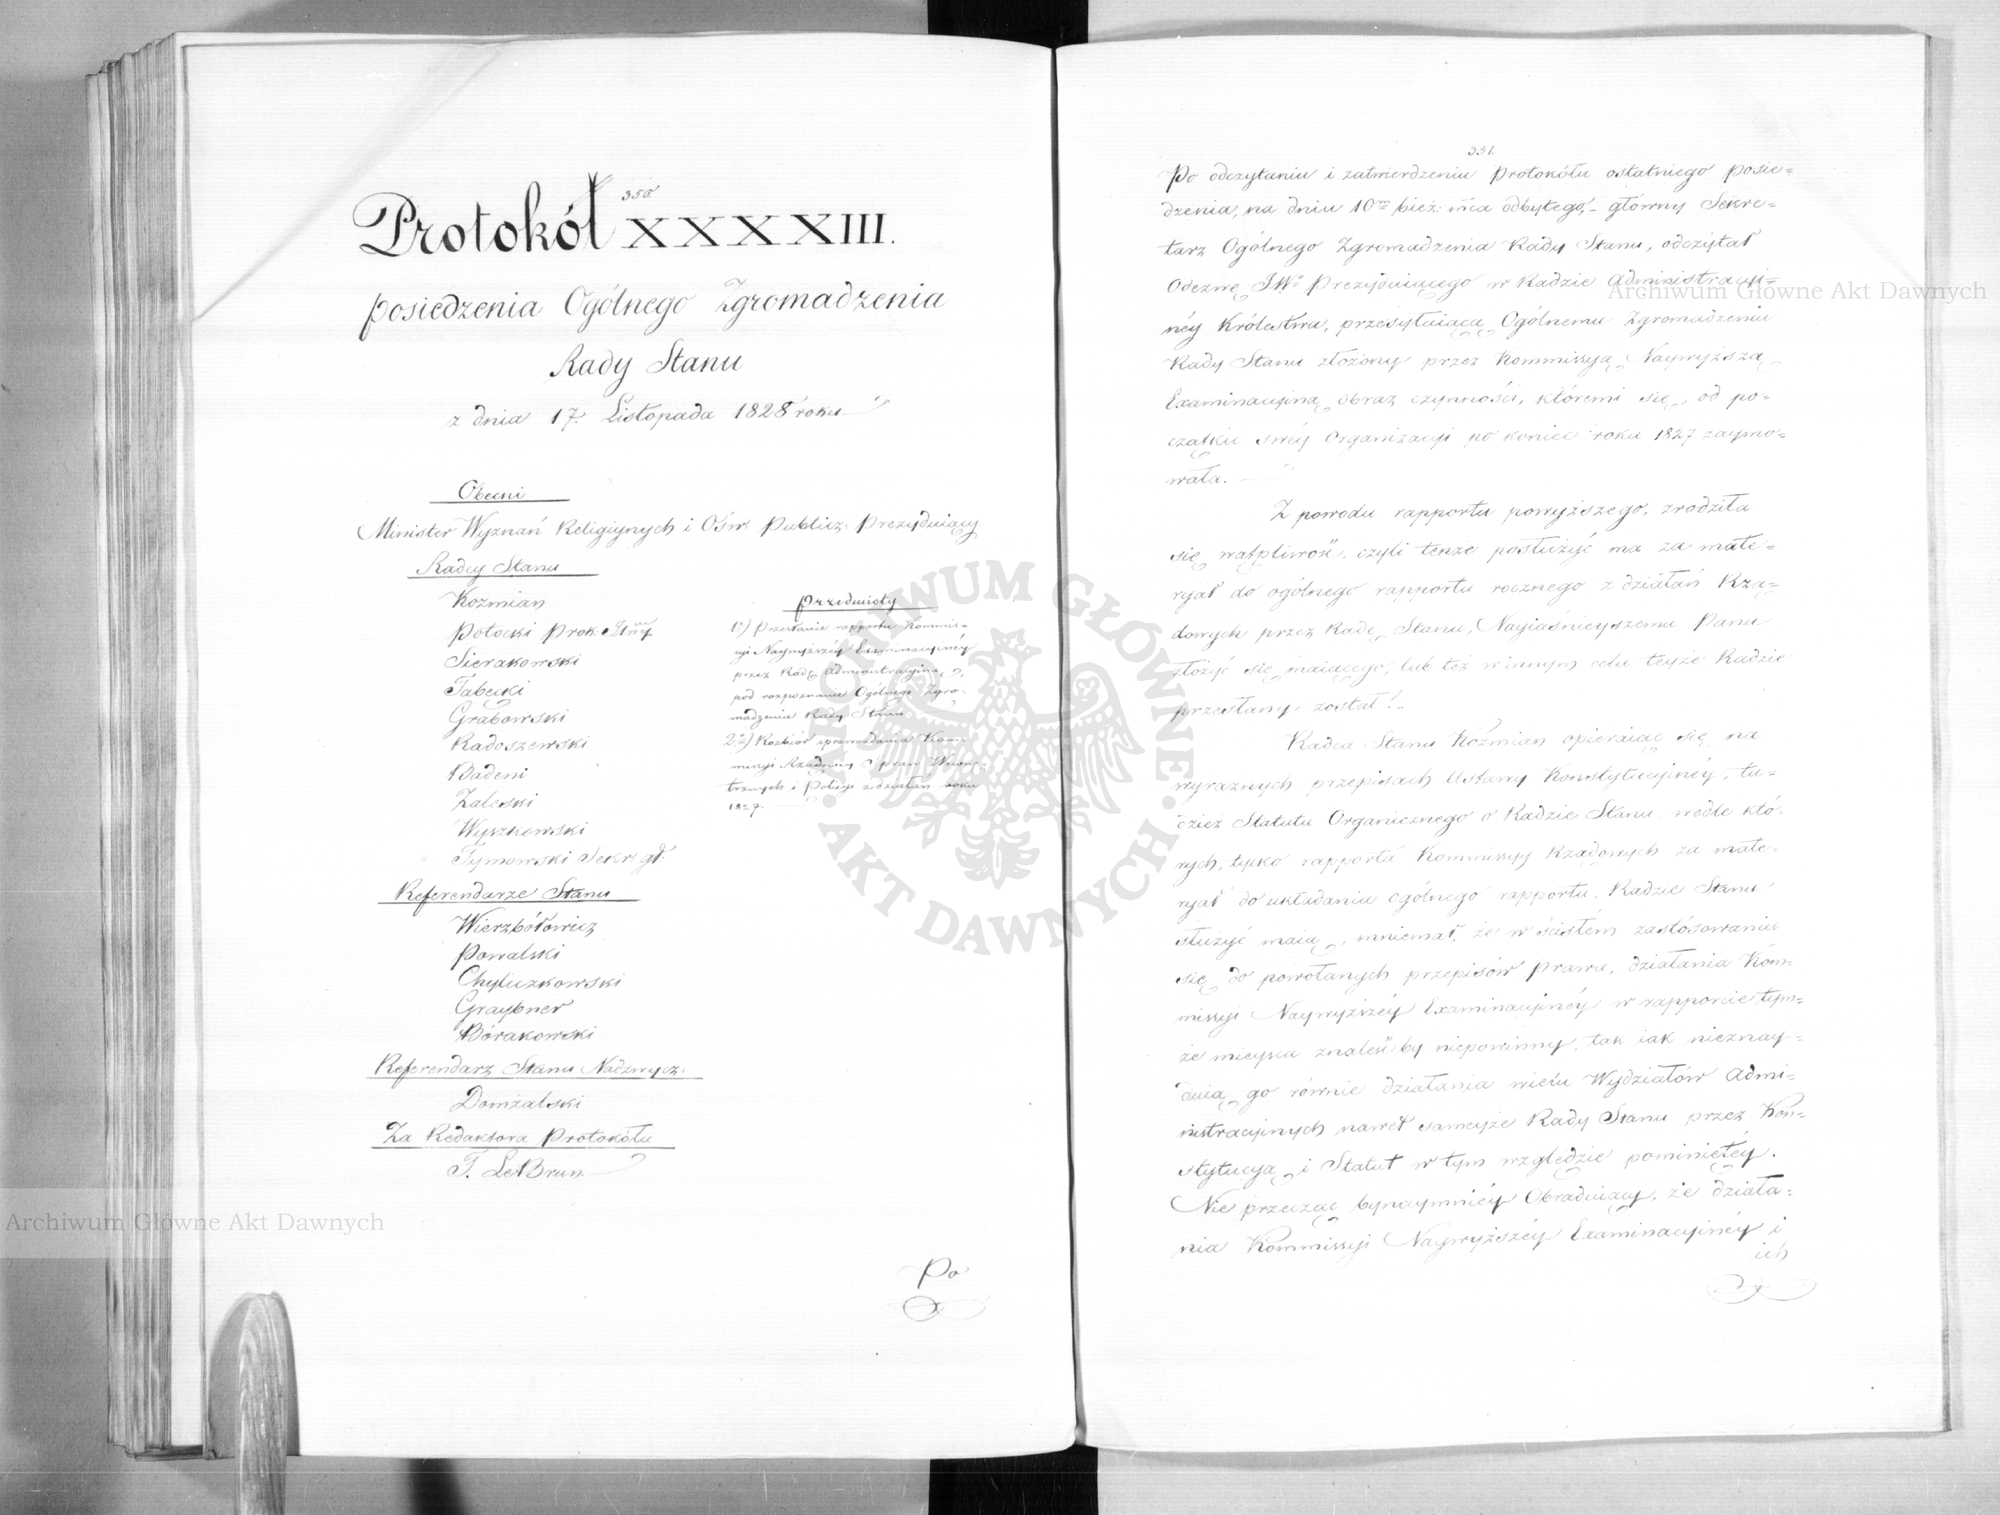 350
Protokół XXXXXIII.
posiedzenia Ogólnego Zgromadzenia
Rady Stanu
z dnia 17. Listopada 1828 roku
Obecni
Minister Wyznań Religiynych i Ośw: Publicz: Prezyduiący
Radcy Stanu
Koźmian
Potocki Prok:
Sierakowski
Tabęcki
Grabowski
Radoszewski
Badeni
Zaleski
Wyszkowski
Tymowski Sekr: gł:
Referendarze Stanu
Wierzbółowicz
Powalski
Chyliczkowski
Graybner
Bórakowski
Referendarz Stanu Nadzwycz:
Domżalski
Za Redaktora Protokółu
T. LeBrun
Przedmioty
1o) Przesłanie rapportu Kommis=
syi Naywyższéy Examinacyinéy
przez Radę Administracyiną,
pod rozpoznanie Ogólnego Zgro=
madzenia Rady Stanu.
2o) Rozbiór sprawozdania Kom=
missyi Rządowéy Spraw Wewnę=
trznych i Policyi z działań roku
1827
Po
351.
Po odczytaniu i zatwierdzeniu Protokółu ostatniego posie=
dzenia, na dniu 10m bież: mca odbytego, – główny Sekre=
tarz Ogólnego Zgromadzenia Rady Stanu, odczytał
Odezwę JWo Prezyduiącego w Radzie Administracyi=
néy Królestwa, przesyłaiącą Ogólnemu Zgromadzeniu
Rady Stanu złożony przez Kommissyą Naywyższą
Examinacyiną obraz czynności, któremi się, od po=
czątku swéy Organizacyi po koniec roku 1827 zaymo=
wała.
Z powodu rapportu powyższego, zrodziła
się wątpliwość, czyli tenże posłużyć ma za mate=
ryał do ogólnego rapportu rocznego z działań Rzą=
dowych przez Radę Stanu, Nayiaśnieyszemu Panu
złożyć się maiącego, lub też w innym celu teyże Radzie
przesłany został? –
Radca Stanu Koźmian opieraiąc się na
wyraznych przepisach Ustawy Konstytucyinéy, tu=
dzież Statutu Organicznego o Radzie Stanu, wedle któ=
rych, tylko rapporta Kommissyy Rządowych za mate=
ryał do układania ogólnego rapportu, Radzie Stanu
służyć maią, mniemał, że w ścisłém zastósowaniu
się do powołanych przepisów prawa, działania Kom=
missyi Naywyższéy Examinacyinéy w rapporcie tym=
że mieysca znaleść by niepowinny, tak iak nieznay=
duią go równie działania wielu Wydziałów Admi=
nistracyinych nawet sameyże Rady Stanu przez Kon=
stytucyą i Statut w tym względzie pominiętéy.
Nie przecząc bynaymniéy Obraduiący, że działa=
nia Kommissyi Naywyższéy Examinacyinéy i
ich
Archiwum Główne Akt Dawnych
Archiwum Główne Akt Dawnych
ARCHIWUM GŁÓWNE. AKT DAWNYCH.